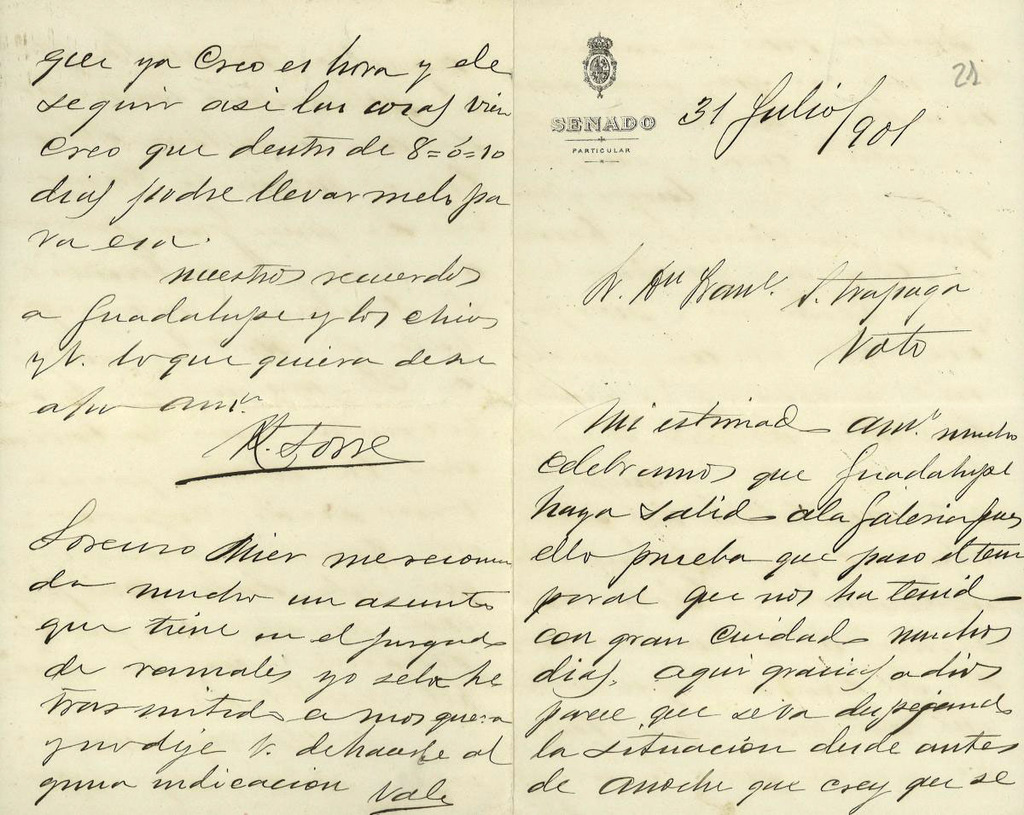 21
SENADO
PARTICULAR
31 Julio/901
Sr. Dn Franco. S. Trapaga
Voto
Mi estimado amo. mucho
celebramos que Guadalupe
haya salido ala Galeria pues
ello prueba que paso el tem
poral que nos ha tenido
con gran cuidado muchos
dias. aqui gracias a dios
parece que se va despejando
la situacion desde antes
de anoche que crey que se
que ya creo es hora y de
seguir asi las cosas vien
creo que dentro de 8=ó=10
dias podre llevarmelo pa
ra esa.
nuestros recuerdos
a Guadalupe y los chicos
y V. lo que quiera de su
afmo amo.
R. Torre
Lorenzo Mier me recomien
da mucho un asunto
que tiene en el juzgado
de ramales yo selo he
trasmitido a mosquera
y no dije V. de hacerle al
guna indicacion Vale